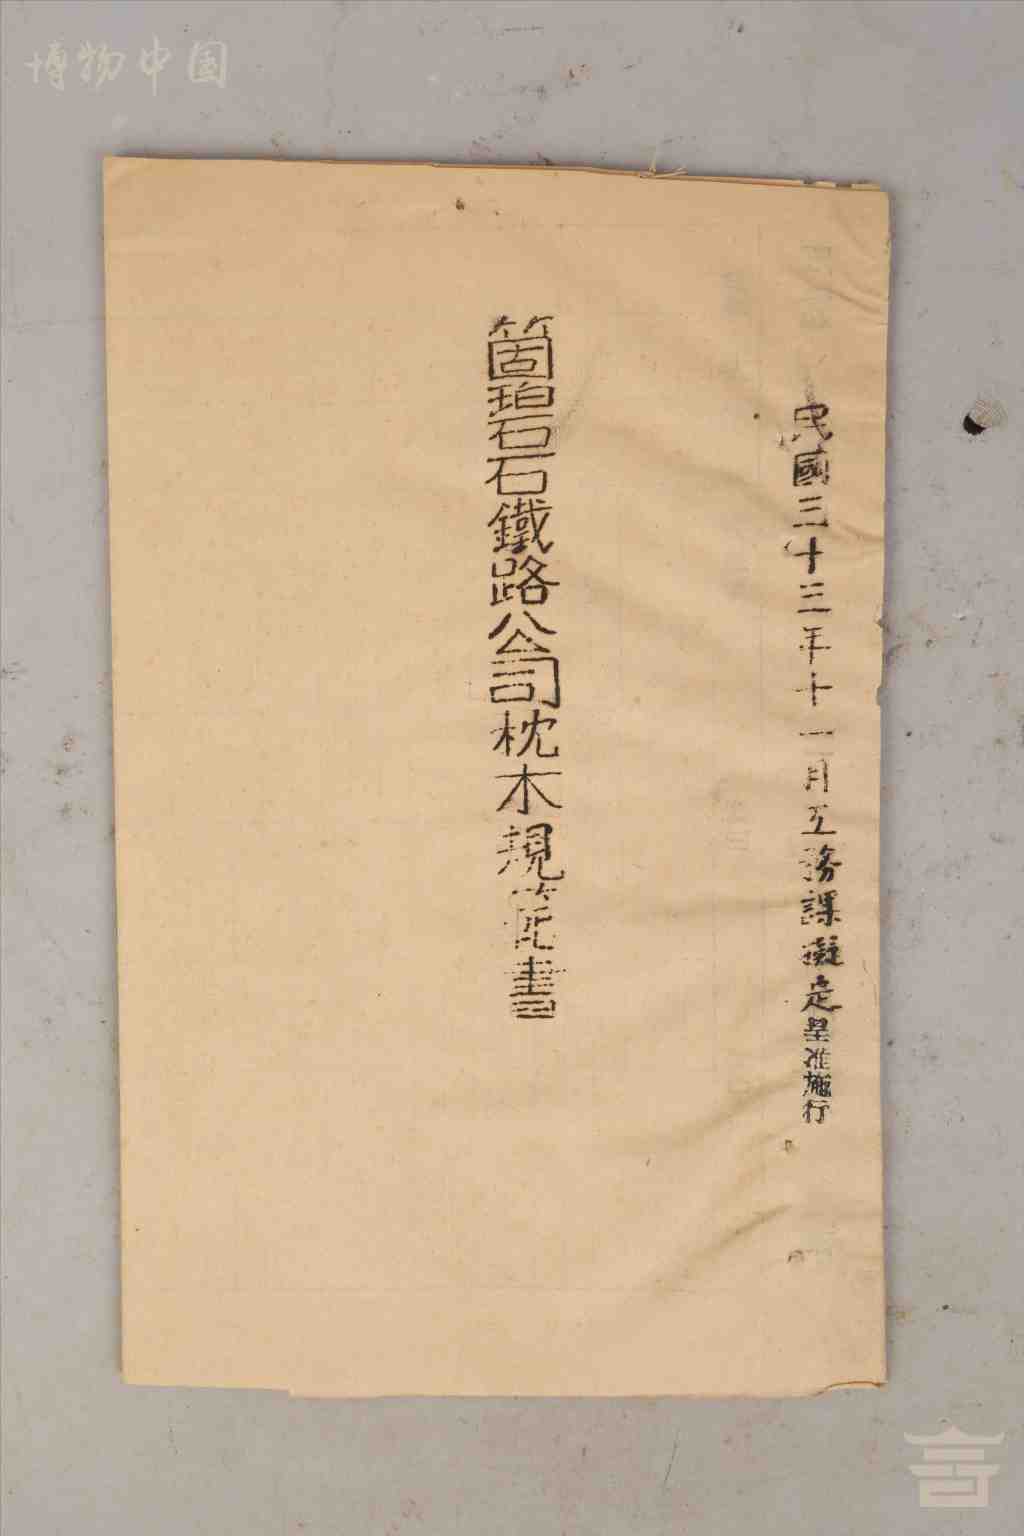 博物中国
民國三十三年十一月工務課擬定呈准施行
箇碧石鐵路公司枕木規范書